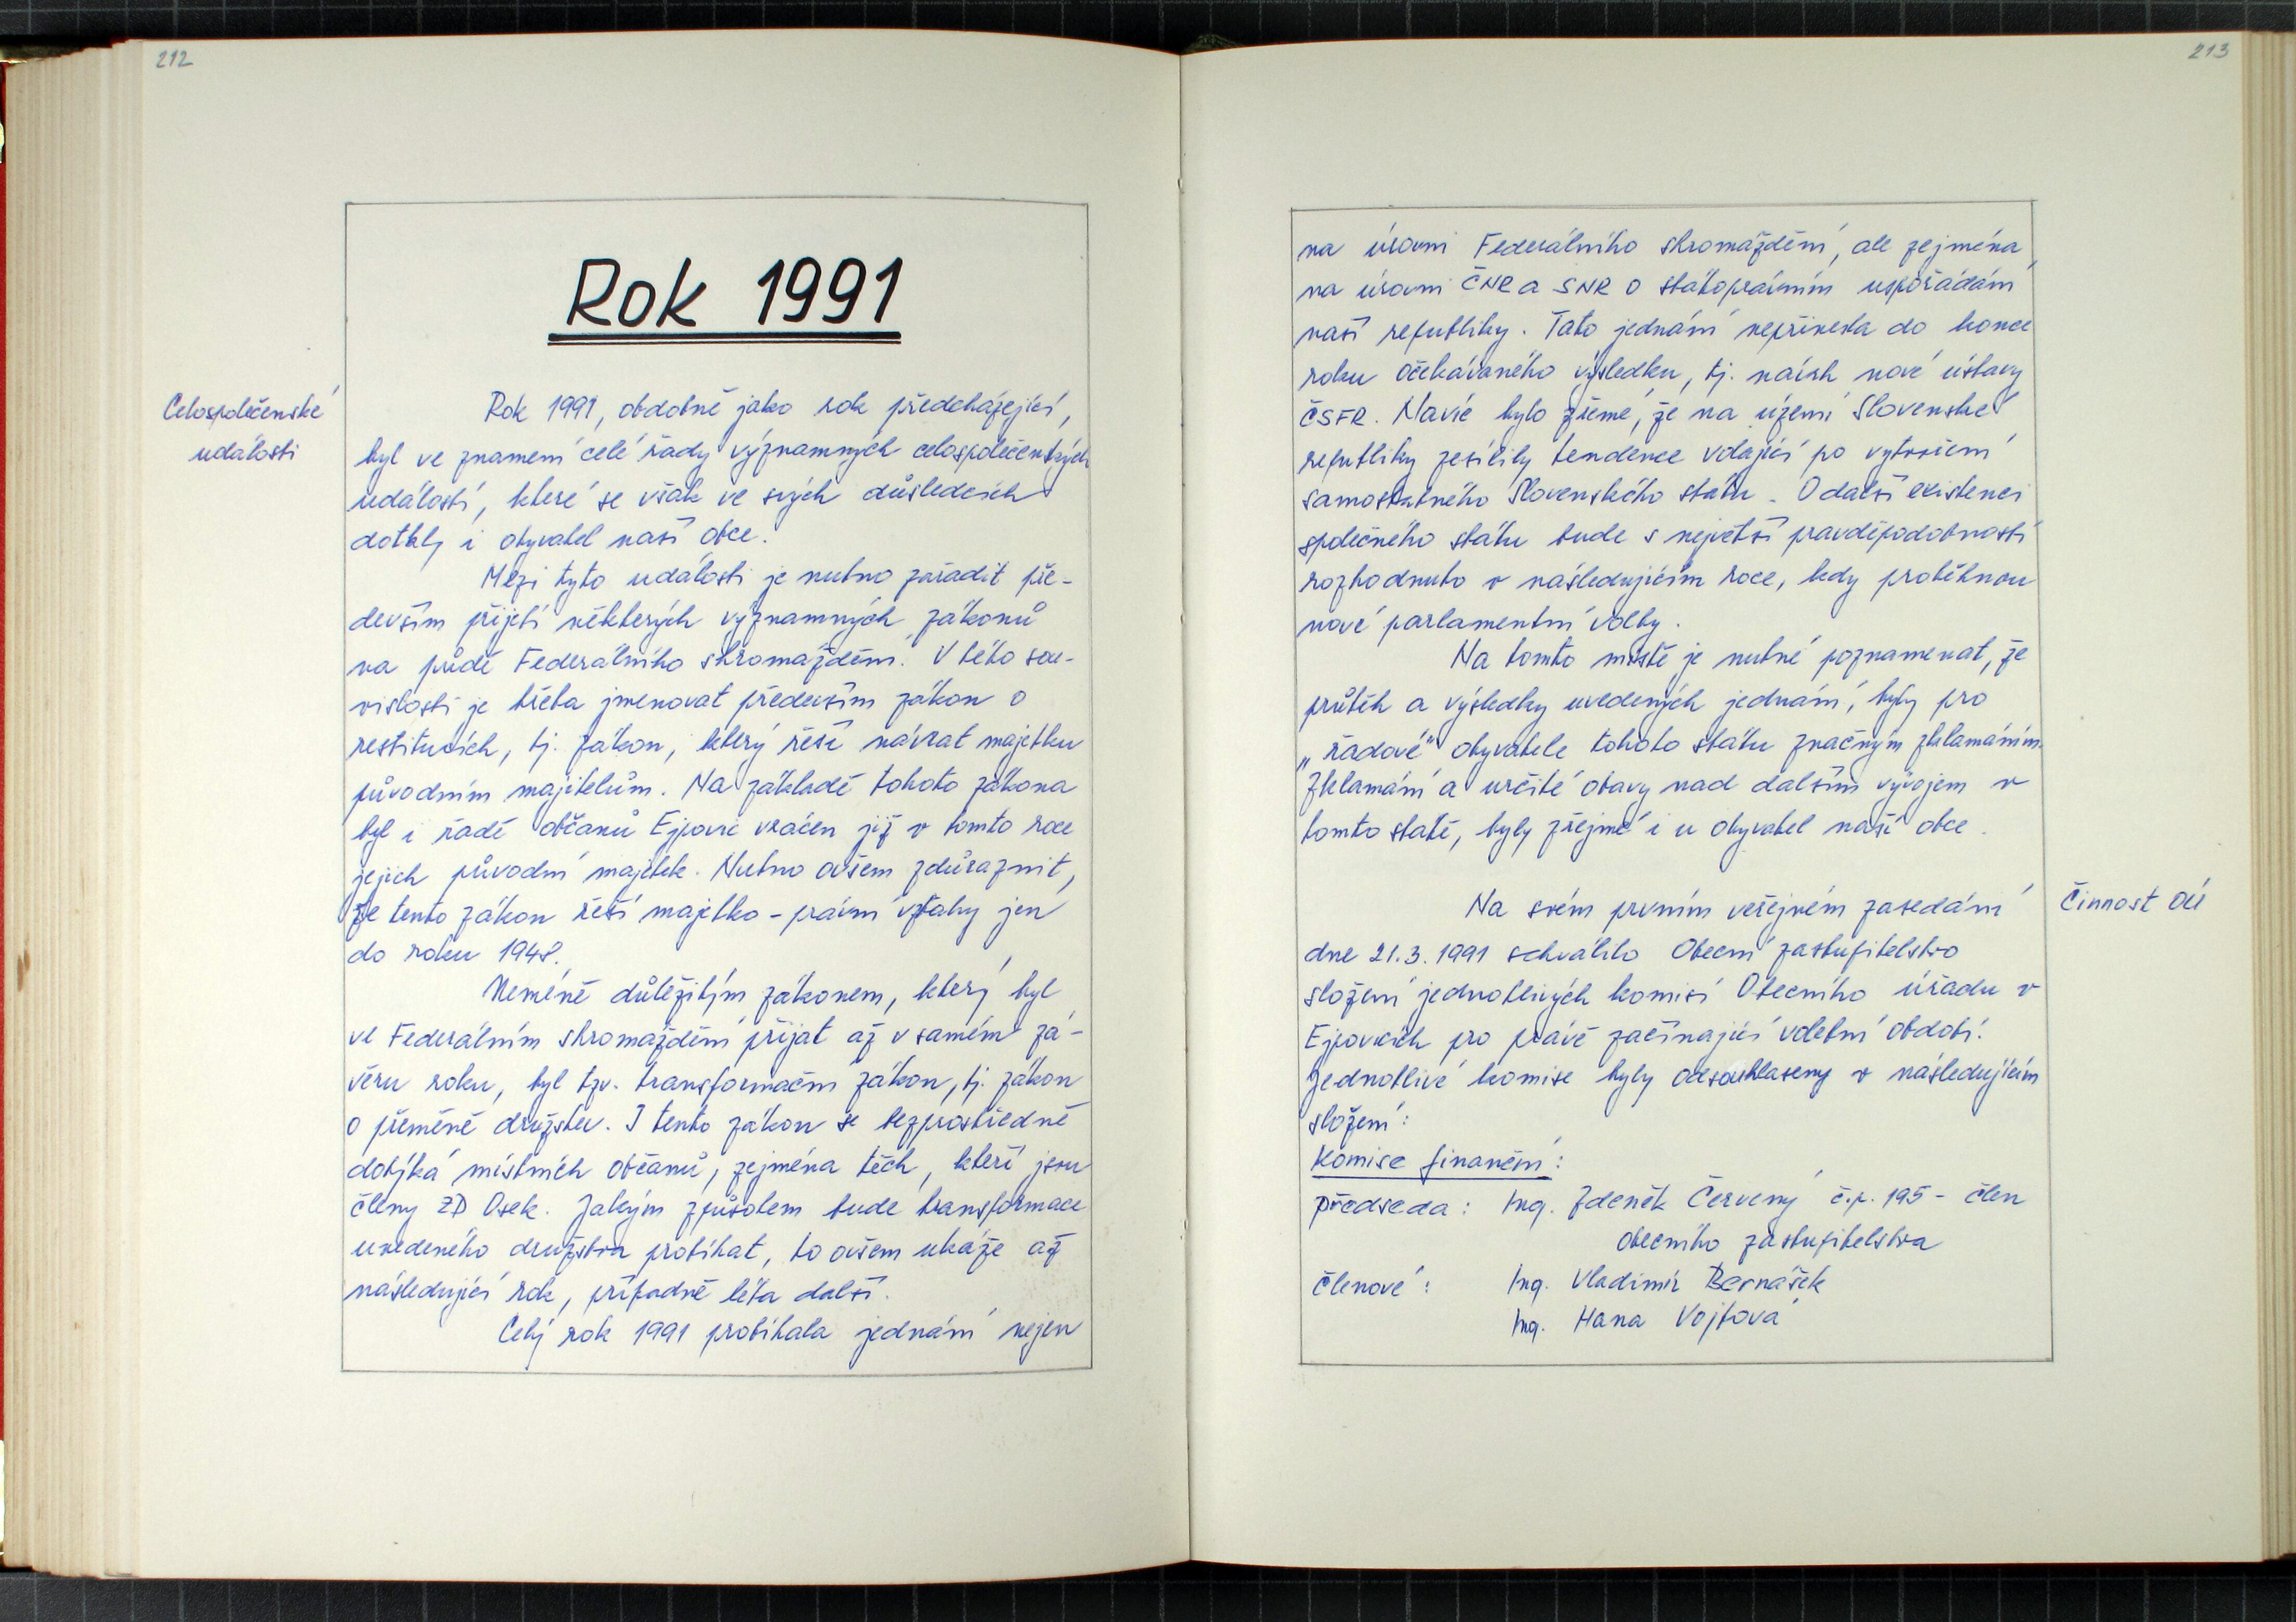 212
Rok 1991
Celospolečenské
události
Rok 1991, obdobně jako rok předcházející,
byl ve znamení celé řady významných celospolečenských
událostí, které se však ve svých důsledcích
dotkly i obyvatel naší obce.
Mezi tyto události je nutno zařadit pře-
devším přijetí některých významných zákonů
na půdě Federálního shromáždění. V této sou-
vislosti je třeba jmenovat především zákon o
restitucích, tj. zákon, který řeší návrat majetku
původním majitelům. Na základě tohoto zákona
byl i řadě občanů Ejpovic vrácen již v tomto roce
jejich původní majetek. Nutno ovšem zdůraznit,
že tento zákon řeší majetko-právní vztahy jen
do roku 1948.
Neméně důležitým zákonem, který byl
ve Federálním shromáždění přijat až v samém zá-
věru roku, byl tzv. transformační zákon, tj. zákon
o přeměně družstev. I tento zákon se bezprostředně
dotýká místních občanů, zejména těch, kteří jsou
členy ZD Osek. Jakým způsobem bude transformace
uvedeného družstva probíhat, to ovšem ukáže až
následující rok, případně léta další.
Celý rok 1991 probíhala jednání nejen
213
na úrovni Federálního shromáždění, ale zejména
na úrovni ČNR a SNR o státoprávním uspořádání
naší republiky. Tato jednání nepřinesla do konce
roku očekávaného výsledku, tj. návrh nové ústavy
ČSFR. Navíc bylo zřemé, že na území Slovenské
republiky zesílily tendence volající po vytvoření
samostatného Slovenského státu. O další existenci
společného státu bude s největší pravděpodobností
rozhodnuto v následujícím roce, kdy proběhnou
nové parlamentní volby.
Na tomto místě je nutné poznamenat, že
průběh a výsledky uvedených jednání, byly pro
„řadové" obyvatele tohoto státu značným zklamáním.
Zklamání a určité obavy nad dalším vývojem v
tomto státě, byly zřejmé i u obyvatel naší obce.
Na svém prvním veřejném zasedání
Činnost OÚ
dne 21.3.1991 schválilo Obecní zastupitelstvo
složení jednotlivých komisí Obecního úřadu v
Ejpovicích pro právě začínající volební období.
Jednotlivé komise byly odsouhlaseny v následujícím
složení:
Komise finanční:
předseda: Ing. Zdeněk Červený č.p. 195 - člen
obecního zastupitelstva
členové: Ing. Vladimír Bernášek
Ing. Hana Vojtová